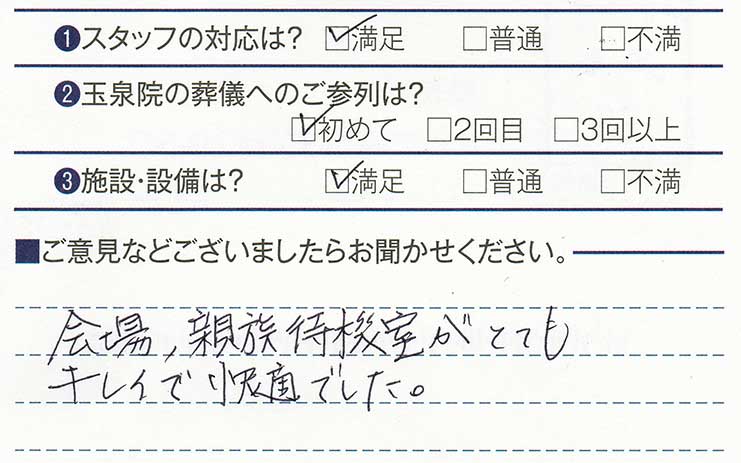 ❶スタッフの対応は? ☑満足 □普通 □不満
❷玉泉院の葬儀へのご参列は?
☑初めて □2回目 □3回以上
❸施設・設備は? ☑満足 □普通 □不満
■ご意見などございましたらお聞かせください。
会場,親族待機室がとても
キレイで快適でした。